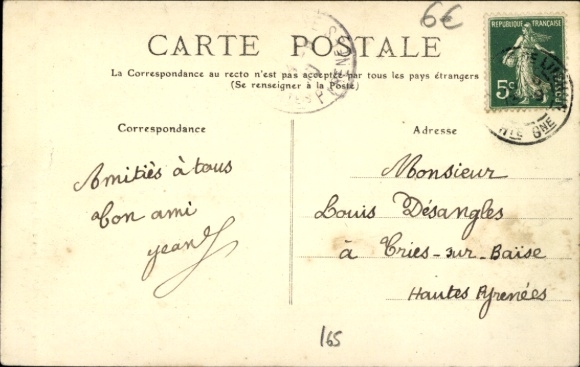 6€
CARTE POSTALE
REPUBLIQUE FRANÇAISE
5c
La Correspondance au recto n'est pas acceptée par tous les pays étrangers
(Se renseigner à la Poste)
Correspondance
Adresse
Amitiés à tous
Ton ami
Jean
Monsieur
Louis Désangles
à Tries-sur-Baïse
Hautes Pyrenées
165